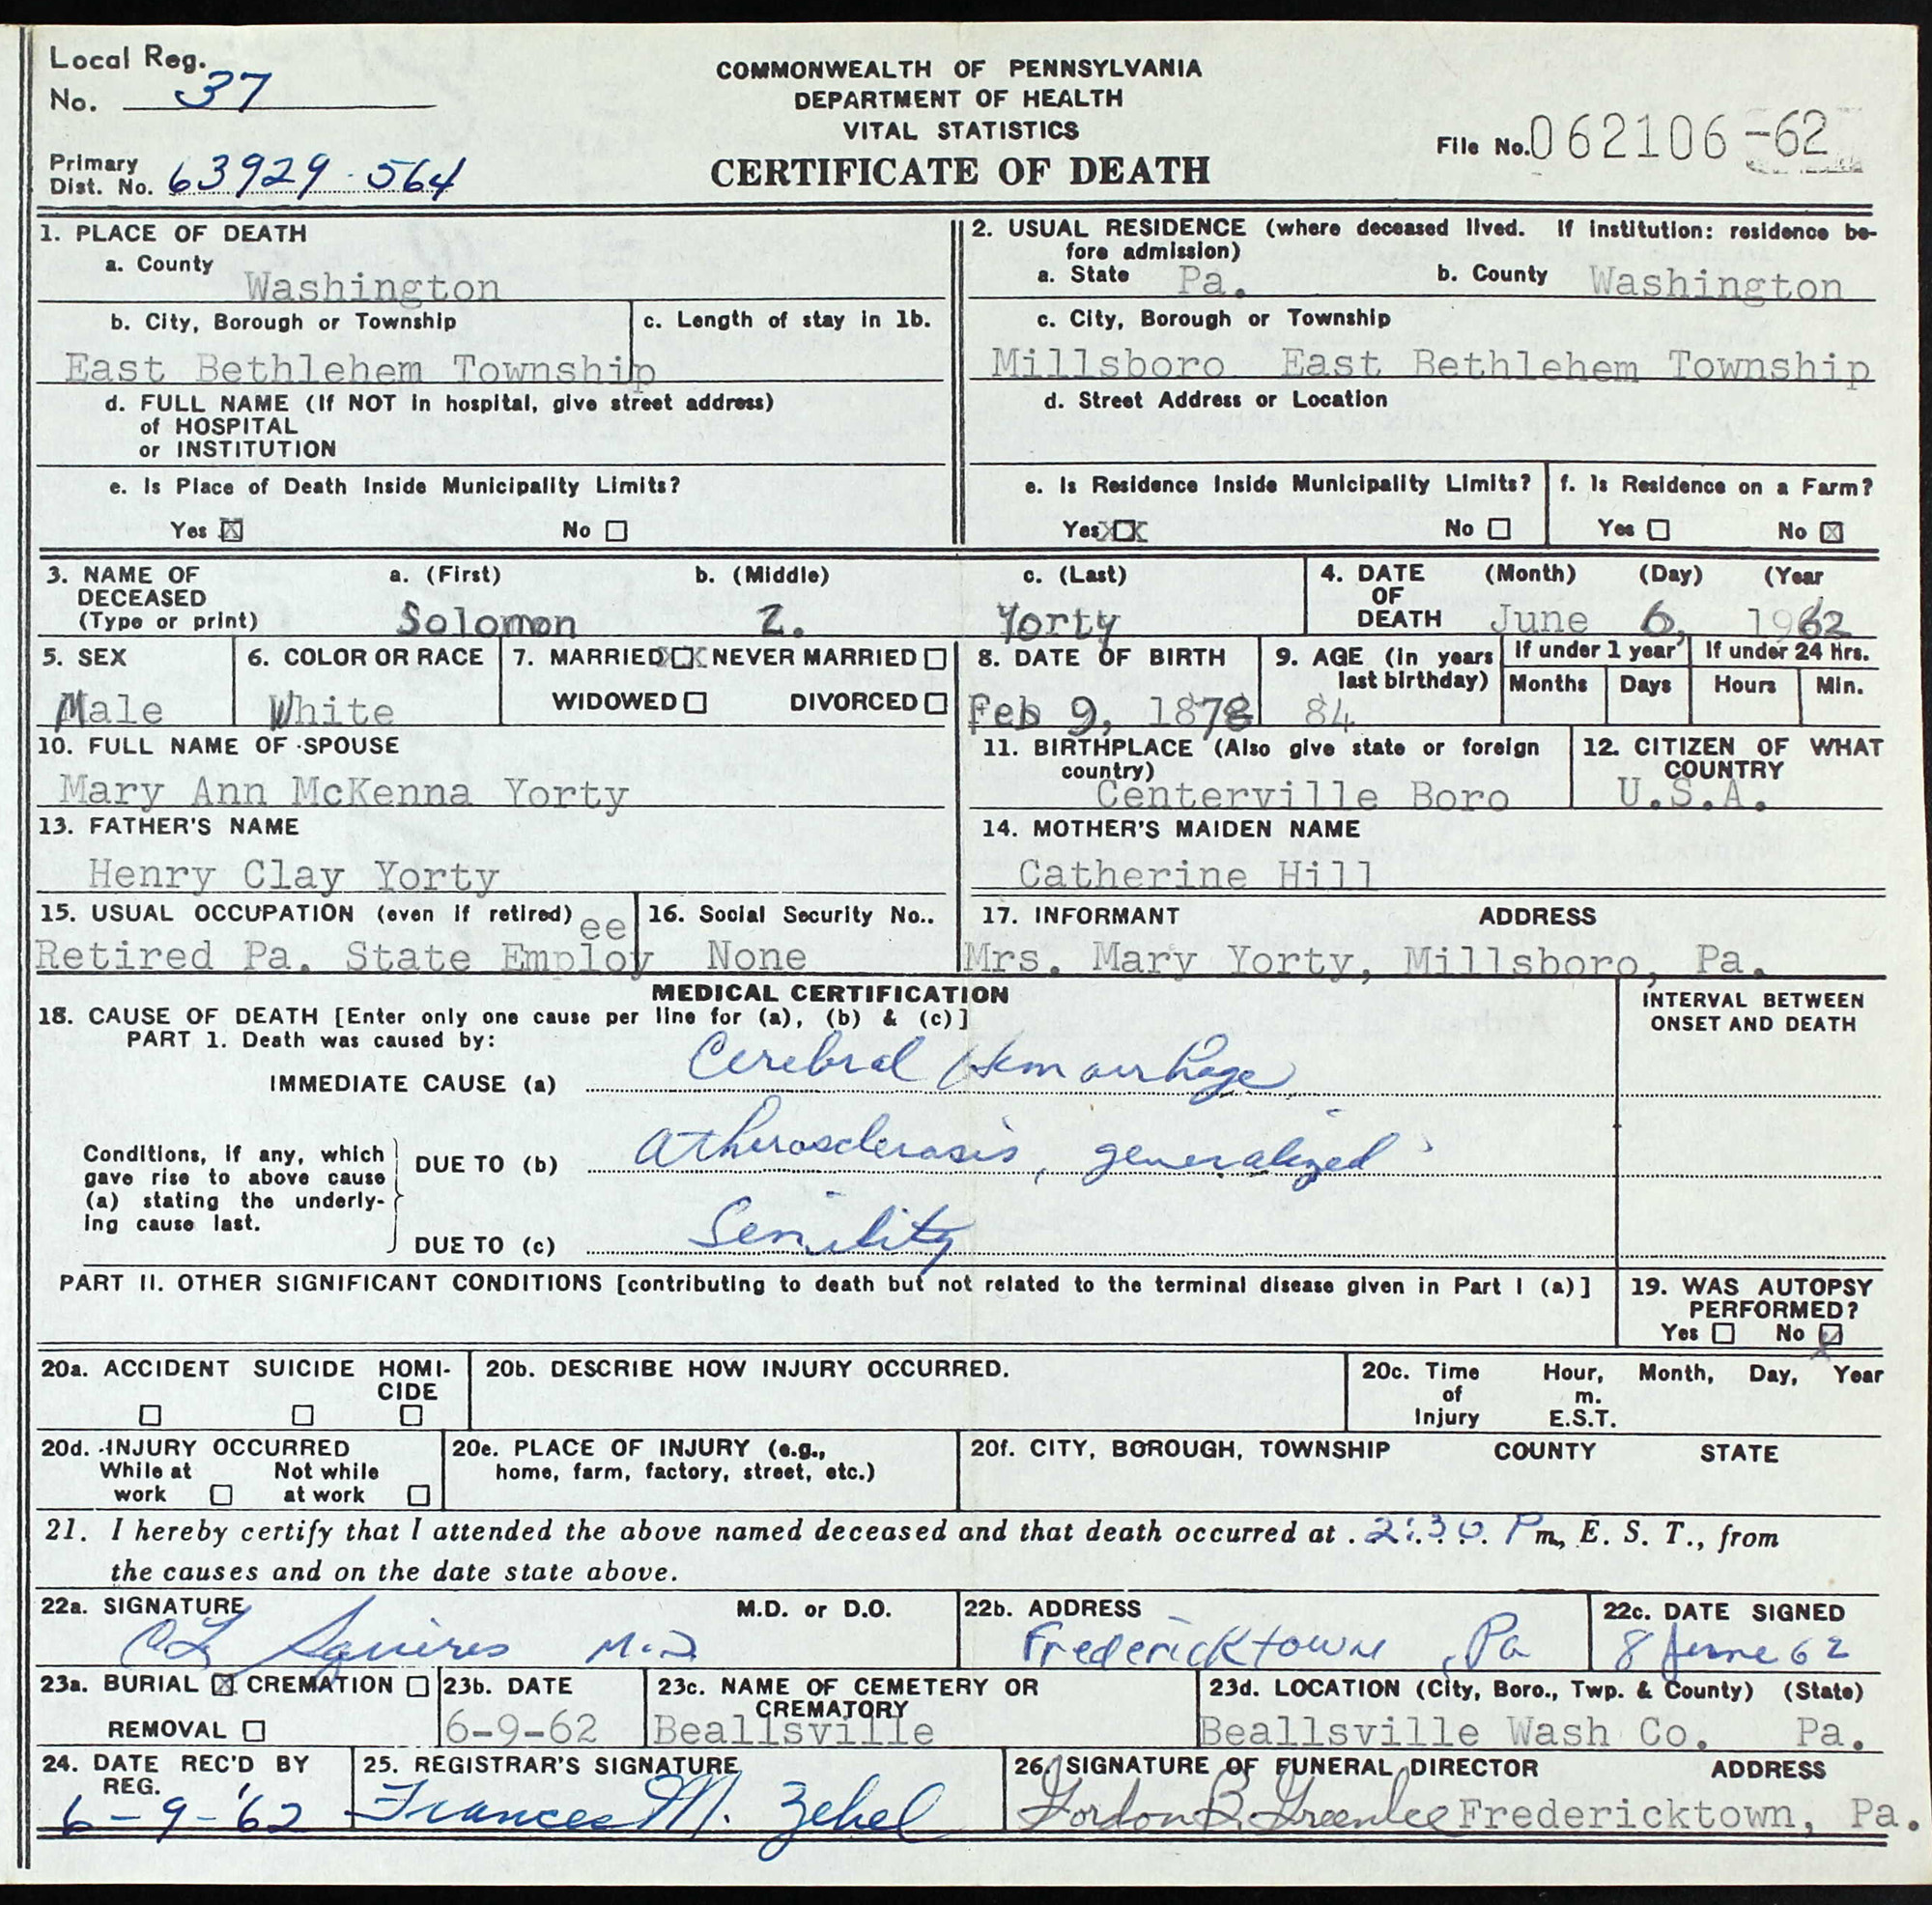 Local Reg.
No. 37
COMMONWEALTH OF PENNSYLVANIA
DEPARTMENT OF HEALTH
VITAL STATISTICS
CERTIFICATE OF DEATH
File No. 062106-62
Primary
Dist. No. 63929-564
1. PLACE OF DEATH
a. County
Washington
b. City, Borough or Township
c. Length of stay in 1b.
East Bethlehem Township
d. FULL NAME (If NOT in hospital, give street address)
of HOSPITAL
or INSTITUTION
e. Is Place of Death Inside Municipality Limits?
Yes ☒ No ☐
2. USUAL RESIDENCE (where deceased lived. If institution: residence be-
fore admission)
a. State Pa. b. County Washington
c. City, Borough or Township
Millsboro East Bethlehem Township
d. Street Address or Location
e. Is Residence Inside Municipality Limits?
Yes ☒ No ☐
f. Is Residence on a Farm?
Yes ☐ No ☒
3. NAME OF
DECEASED
(Type or print)
a. (First) b. (Middle) c. (Last)
Solomon Z. Yorty
4. DATE (Month) (Day) (Year
OF
DEATH June 6, 1962
5. SEX
Male
6. COLOR OR RACE
White
7. MARRIED ☒ NEVER MARRIED ☐
WIDOWED ☐ DIVORCED ☐
8. DATE OF BIRTH
Feb 9, 1878
9. AGE (In years
last birthday)
84
If under 1 year
Months Days
If under 24 Hrs.
Hours Min.
10. FULL NAME OF SPOUSE
Mary Ann McKenna Yorty
11. BIRTHPLACE (Also give state or foreign
country)
Centerville Boro
12. CITIZEN OF WHAT
COUNTRY
U.S.A.
13. FATHER'S NAME
Henry Clay Yorty
14. MOTHER'S MAIDEN NAME
Catherine Hill
15. USUAL OCCUPATION (even if retired)
ee
Retired Pa. State Employ
16. Social Security No..
None
17. INFORMANT ADDRESS
Mrs. Mary Yorty, Millsboro, Pa.
MEDICAL CERTIFICATION
18. CAUSE OF DEATH [Enter only one cause per line for (a), (b) & (c)]
PART 1. Death was caused by:
INTERVAL BETWEEN
ONSET AND DEATH
IMMEDIATE CAUSE (a) Cerebral Hemorrhage
Conditions, if any, which
gave rise to above cause
(a) stating the underly-
ing cause last.
DUE TO (b) atherosclerosis, generalized
DUE TO (c) Senility
PART II. OTHER SIGNIFICANT CONDITIONS [contributing to death but not related to the terminal disease given in Part I (a)]
19. WAS AUTOPSY
PERFORMED?
Yes ☐ No ☒
20a. ACCIDENT SUICIDE HOMI-
CIDE
☐ ☐ ☐
20b. DESCRIBE HOW INJURY OCCURRED.
20c. Time Hour, Month, Day, Year
of m.
Injury E.S.T.
20d. INJURY OCCURRED
While at Not while
work ☐ at work ☐
20e. PLACE OF INJURY (e.g.,
home, farm, factory, street, etc.)
20f. CITY, BOROUGH, TOWNSHIP COUNTY STATE
21. I hereby certify that I attended the above named deceased and that death occurred at 2:30 P m., E. S. T., from
the causes and on the date state above.
22a. SIGNATURE M.D. or D.O.
CL Squires M.D
22b. ADDRESS
Fredericktown, Pa
22c. DATE SIGNED
8 June 62
23a. BURIAL ☒ CREMATION ☐
REMOVAL ☐
23b. DATE
6-9-62
23c. NAME OF CEMETERY OR
CREMATORY
Beallsville
23d. LOCATION (City, Boro., Twp. & County) (State)
Beallsville Wash Co. Pa.
24. DATE REC'D BY
REG.
6-9-'62
25. REGISTRAR'S SIGNATURE
Frances M. Zehel
26. SIGNATURE OF FUNERAL DIRECTOR ADDRESS
Gordon B. Greenlee Fredericktown, Pa.